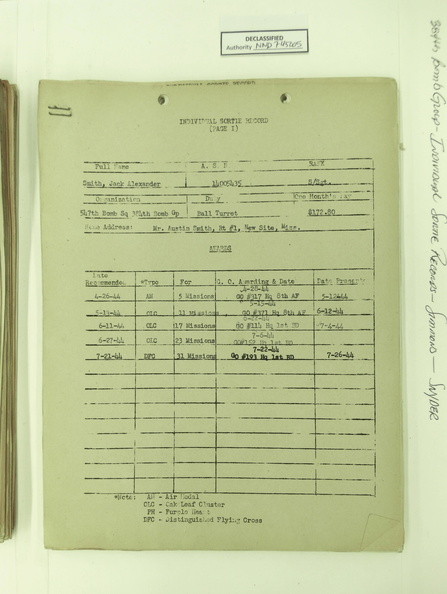 DECLASSIFIED
Authority NND 745005
384th Bomb Group - Individual Sortie Records - Simmons - Snyder
INDIVIDUAL SORTIE RECORD
(PAGE I)
Full Name A. S. N RANK
Smith, Jack Alexander 14005435 S/Sgt.
Organization Duty One Month's Pay
547th Bomb Sq 384th Bomb Gp Ball Turret $172.80
Home Address: Mr. Austin Smith, Rt #1, New Site, Miss.
AWARDS
Date
Recommended *Type For G. O. Awarding & Date Date Present
4-28-44
4-26-44 AM 5 Missions GO #317 Hq 8th AF 5-12-44
5-15-44
5-13-44 OLC 11 Missions GO #371 Hq 8th AF 6-12-44
6-11-44 OLC 17 Missions GO #114 Hq 1st BD 7-4-44
7-6-44
6-27-44 OLC 23 Missions GO#152 Hq 1st BD
7-22-44
7-21-44 DFC 31 Missions GO #193 Hq 1st BD 7-26-44
*Note: AM - Air Medal
OLC - Oak Leaf Cluster
PH - Purple Heart
DFC - Distinguished Flying Cross